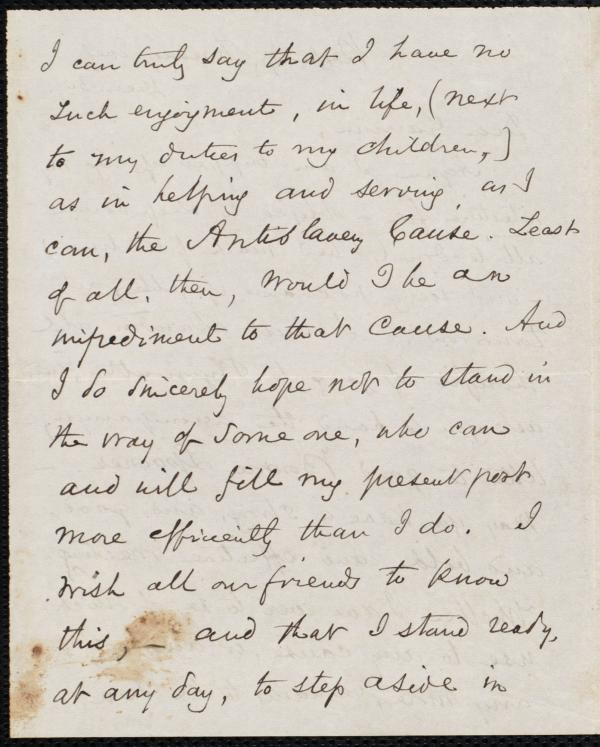 I can truly say that I have no
such enjoyment, in life, (next
to my duties to my children,)
as in helping and serving, as I
can, the Antislavery Cause. Least
of all, then, would I be an
impediment to that Cause. And
I do sincerely hope not to stand in
the way of some one, who can
and will fill my present post
more efficiently than I do. I
wish all our friends to know
this, – and that I stand ready,
at any day, to step aside in